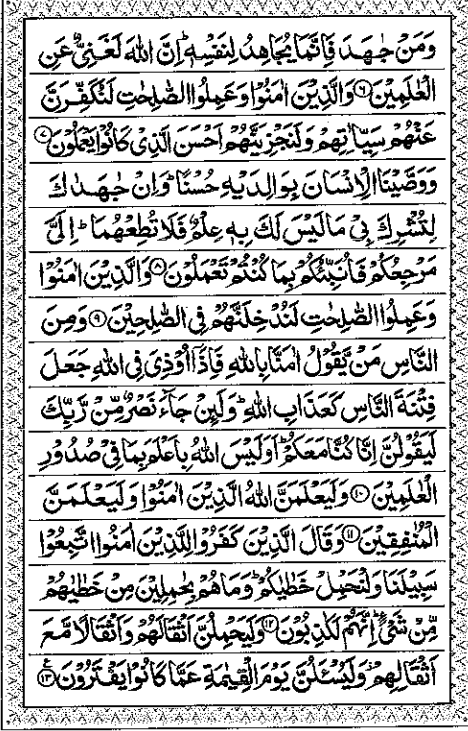 وَمَنْ جٰهَدَ فَاِنَّمَا يُجَاهِدُ لِنَفْسِهٖ ؕ اِنَّ اللّٰهَ لَغَنِيٌّ عَنِ
الْعٰلَمِيْنَ ۶ وَالَّذِيْنَ اٰمَنُوْا وَعَمِلُوا الصّٰلِحٰتِ لَنُكَفِّرَنَّ
عَنْهُمْ سَيِّاٰتِهِمْ وَلَنَجْزِيَنَّهُمْ اَحْسَنَ الَّذِيْ كَانُوْا يَعْمَلُوْنَ ۷
وَوَصَّيْنَا الْاِنْسَانَ بِوَالِدَيْهِ حُسْنًا ؕ وَاِنْ جٰهَدٰكَ
لِتُشْرِكَ بِيْ مَا لَيْسَ لَكَ بِهٖ عِلْمٌ فَلَا تُطِعْهُمَا ؕ اِلَيَّ
مَرْجِعُكُمْ فَاُنَبِّئُكُمْ بِمَا كُنْتُمْ تَعْمَلُوْنَ ۸ وَالَّذِيْنَ اٰمَنُوْا
وَعَمِلُوا الصّٰلِحٰتِ لَنُدْخِلَنَّهُمْ فِي الصّٰلِحِيْنَ ۹ وَمِنَ
النَّاسِ مَنْ يَّقُوْلُ اٰمَنَّا بِاللّٰهِ فَاِذَاۤ اُوْذِيَ فِي اللّٰهِ جَعَلَ
فِتْنَةَ النَّاسِ كَعَذَابِ اللّٰهِ ؕ وَلَئِنْ جَآءَ نَصْرٌ مِّنْ رَّبِّكَ
لَيَقُوْلُنَّ اِنَّا كُنَّا مَعَكُمْ ؕ اَوَلَيْسَ اللّٰهُ بِاَعْلَمَ بِمَا فِيْ صُدُوْرِ
الْعٰلَمِيْنَ ۱۰ وَلَيَعْلَمَنَّ اللّٰهُ الَّذِيْنَ اٰمَنُوْا وَلَيَعْلَمَنَّ
الْمُنٰفِقِيْنَ ۱۱ وَقَالَ الَّذِيْنَ كَفَرُوْا لِلَّذِيْنَ اٰمَنُوا اتَّبِعُوْا
سَبِيْلَنَا وَلْنَحْمِلْ خَطٰيٰكُمْ ؕ وَمَا هُمْ بِحٰمِلِيْنَ مِنْ خَطٰيٰهُمْ
مِّنْ شَيْءٍ ؕ اِنَّهُمْ لَكٰذِبُوْنَ ۱۲ وَلَيَحْمِلُنَّ اَثْقَالَهُمْ وَاَثْقَالًا مَّعَ
اَثْقَالِهِمْ ؗ وَلَيُسْـَٔلُنَّ يَوْمَ الْقِيٰمَةِ عَمَّا كَانُوْا يَفْتَرُوْنَ ۱۳ ع